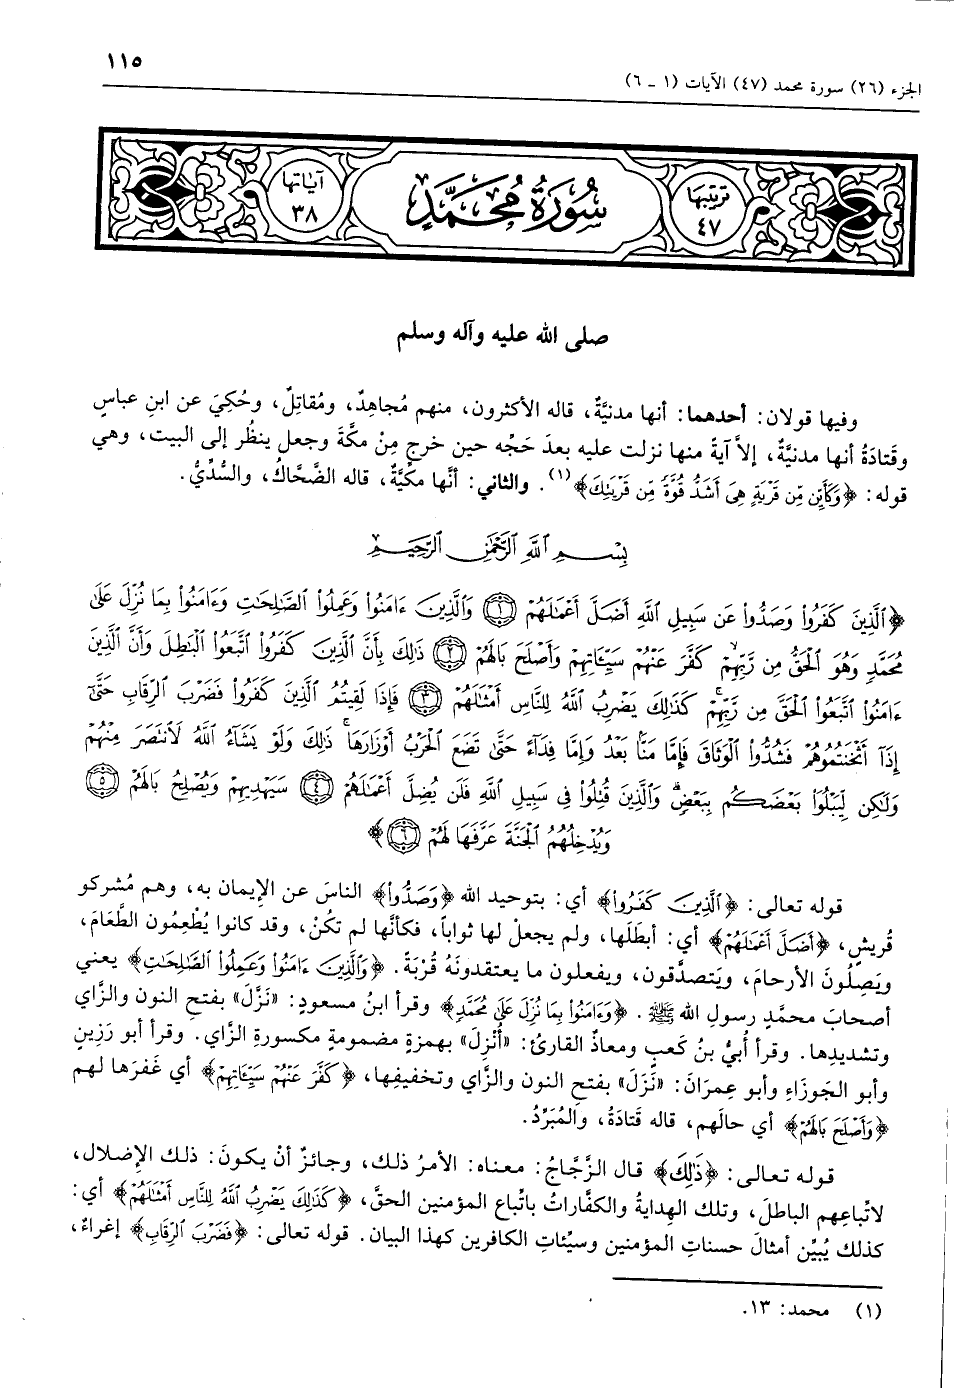 ١١٥
الجزء (٢٦) سورة محمد (٤٧) الآيات (١ - ٦)
ترتيبها ٤٧
سُورَةُ مُحَمَّدٍ
آياتها ٣٨
صلى الله عليه وآله وسلم
وفيها قولان: أحدهما: أنها مدنيَّةٌ، قاله الأكثرون، منهم مُجاهِدٌ، ومُقاتِلٌ، وحُكِيَ عن ابنِ عباسٍ
وقَتادَةُ أنها مدنيَّةٌ، إلاَّ آيةً منها نزلت عليه بعدَ حَجِّه حين خرج مِنْ مكَّةَ وجعل ينظُر إلى البيت، وهي
قوله: ﴿وَكَأَيِّن مِّن قَرْيَةٍ هِيَ أَشَدُّ قُوَّةً مِّن قَرْيَتِكَ﴾(١). والثاني: أنَّها مكِّيَّةٌ، قاله الضَّحَّاكُ، والسُّدِّيُّ.
بِسْمِ اللَّهِ الرَّحْمَٰنِ الرَّحِيمِ
﴿الَّذِينَ كَفَرُوا۟ وَصَدُّوا۟ عَن سَبِيلِ اللَّهِ أَضَلَّ أَعْمَٰلَهُمْ ۝١ وَالَّذِينَ ءَامَنُوا۟ وَعَمِلُوا۟ الصَّٰلِحَٰتِ وَءَامَنُوا۟ بِمَا نُزِّلَ عَلَىٰ
مُحَمَّدٍ وَهُوَ الْحَقُّ مِن رَّبِّهِمْ ۙ كَفَّرَ عَنْهُمْ سَيِّـَٔاتِهِمْ وَأَصْلَحَ بَالَهُمْ ۝٢ ذَٰلِكَ بِأَنَّ الَّذِينَ كَفَرُوا۟ اتَّبَعُوا۟ الْبَٰطِلَ وَأَنَّ الَّذِينَ
ءَامَنُوا۟ اتَّبَعُوا۟ الْحَقَّ مِن رَّبِّهِمْ ۚ كَذَٰلِكَ يَضْرِبُ اللَّهُ لِلنَّاسِ أَمْثَٰلَهُمْ ۝٣ فَإِذَا لَقِيتُمُ الَّذِينَ كَفَرُوا۟ فَضَرْبَ الرِّقَابِ حَتَّىٰٓ
إِذَآ أَثْخَنتُمُوهُمْ فَشُدُّوا۟ الْوَثَاقَ فَإِمَّا مَنًّۢا بَعْدُ وَإِمَّا فِدَآءً حَتَّىٰ تَضَعَ الْحَرْبُ أَوْزَارَهَا ۚ ذَٰلِكَ وَلَوْ يَشَآءُ اللَّهُ لَانتَصَرَ مِنْهُمْ
وَلَٰكِن لِّيَبْلُوَا۟ بَعْضَكُم بِبَعْضٍ ۗ وَالَّذِينَ قُتِلُوا۟ فِي سَبِيلِ اللَّهِ فَلَن يُضِلَّ أَعْمَٰلَهُمْ ۝٤ سَيَهْدِيهِمْ وَيُصْلِحُ بَالَهُمْ ۝٥
وَيُدْخِلُهُمُ الْجَنَّةَ عَرَّفَهَا لَهُمْ ۝٦﴾
قوله تعالى: ﴿الَّذِينَ كَفَرُوا۟﴾ أي: بتوحيد الله ﴿وَصَدُّوا۟﴾ الناسَ عن الإيمان به، وهم مُشركو
قُريشٍ، ﴿أَضَلَّ أَعْمَٰلَهُمْ﴾ أي: أبطَلَها، ولم يجعلْ لها ثواباً، فكأنَّها لم تكُنْ، وقد كانوا يُطْعِمُون الطَّعامَ،
ويَصِلُونَ الأرحامَ، ويَتصدَّقون، ويفعلون ما يعتقدونَهُ قُرْبَةً. ﴿وَالَّذِينَ ءَامَنُوا۟ وَعَمِلُوا۟ الصَّٰلِحَٰتِ﴾ يعني
أصحابَ محمَّدٍ رسولِ الله ﷺ. ﴿وَءَامَنُوا۟ بِمَا نُزِّلَ عَلَىٰ مُحَمَّدٍ﴾ وقرأ ابنُ مسعودٍ: «نَزَّلَ» بفتح النون والزَّاي
وتشديدِها. وقرأ أُبيُّ بنُ كَعبٍ ومعاذٌ القارئ: «أُنْزِلَ» بهمزةٍ مضمومةٍ مكسورةِ الزَّاي. وقرأ أبو رَزِينٍ
وأبو الجَوزَاءِ وأبو عِمرَانَ: «نَزَلَ» بفتحِ النون والزَّاي وتخفيفِها، ﴿كَفَّرَ عَنْهُمْ سَيِّـَٔاتِهِمْ﴾ أي غَفَرَها لهم
﴿وَأَصْلَحَ بَالَهُمْ﴾ أي حالَهم، قاله قَتادَةُ، والمُبَرِّدُ.
قوله تعالى: ﴿ذَٰلِكَ﴾ قال الزَّجَّاجُ: معناه: الأمرُ ذلك، وجائزٌ أنْ يكونَ: ذلك الإضلال،
لاتِّباعِهم الباطلَ، وتلك الهِدايةُ والكفَّاراتُ باتِّباع المؤمنين الحقَّ، ﴿كَذَٰلِكَ يَضْرِبُ اللَّهُ لِلنَّاسِ أَمْثَٰلَهُمْ﴾ أي:
كذلك يُبيِّن أمثالَ حسناتِ المؤمنين وسيِّئاتِ الكافرين كهذا البيان. قوله تعالى: ﴿فَضَرْبَ الرِّقَابِ﴾ إغراءٌ،
(١) محمد: ١٣.